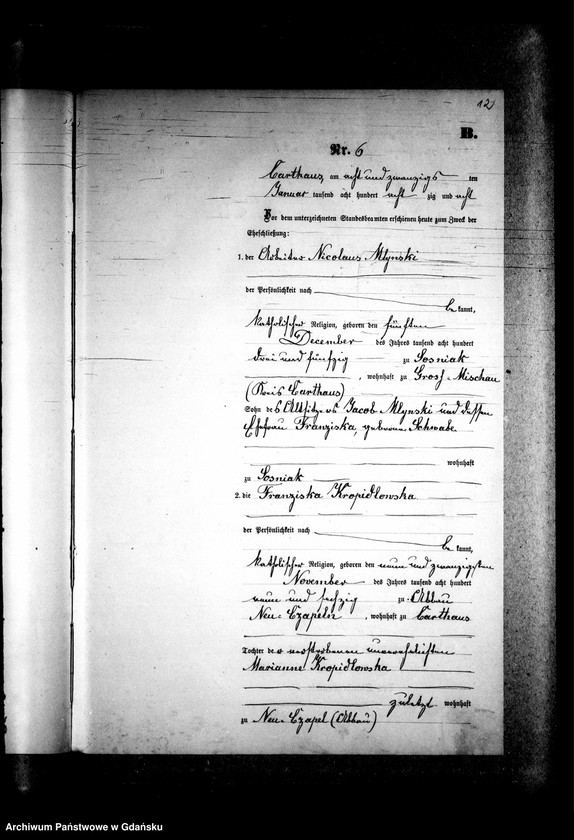 12
B.
Nr. 6
Carthaus, am acht und zwanzigsten
Januar tausend acht hundert acht zig und acht
Vor dem unterzeichneten Standesbeamten erschienen heute zum Zweck der
Eheschließung:
1. der Arbeiter Nicolaus Mlynski
der Persönlichkeit nach
be kannt,
katholischer Religion, geboren den fünften
December des Jahres tausend acht hundert
drei und fünfzig zu Sosniak
, wohnhaft zu Gross Mischau
(Kreis Carthaus)
Sohn des Altsitzers Jacob Mlynski und dessen
Ehefrau Franziska, geborene Schwabe
wohnhaft
zu Sosniak
2. die Franziska Kropidlowska
der Persönlichkeit nach
be kannt,
katholischer Religion, geboren den neun und zwanzigsten
November des Jahres tausend acht hundert
neun und sechzig zu Abbau
Neu-Czapeln, wohnhaft zu Carthaus
Tochter der verstorbenen unverehelichten
Marianne Kropidlowska
zuletzt wohnhaft
zu Neu-Czapel (Abbau)
Archiwum Państwowe w Gdańsku